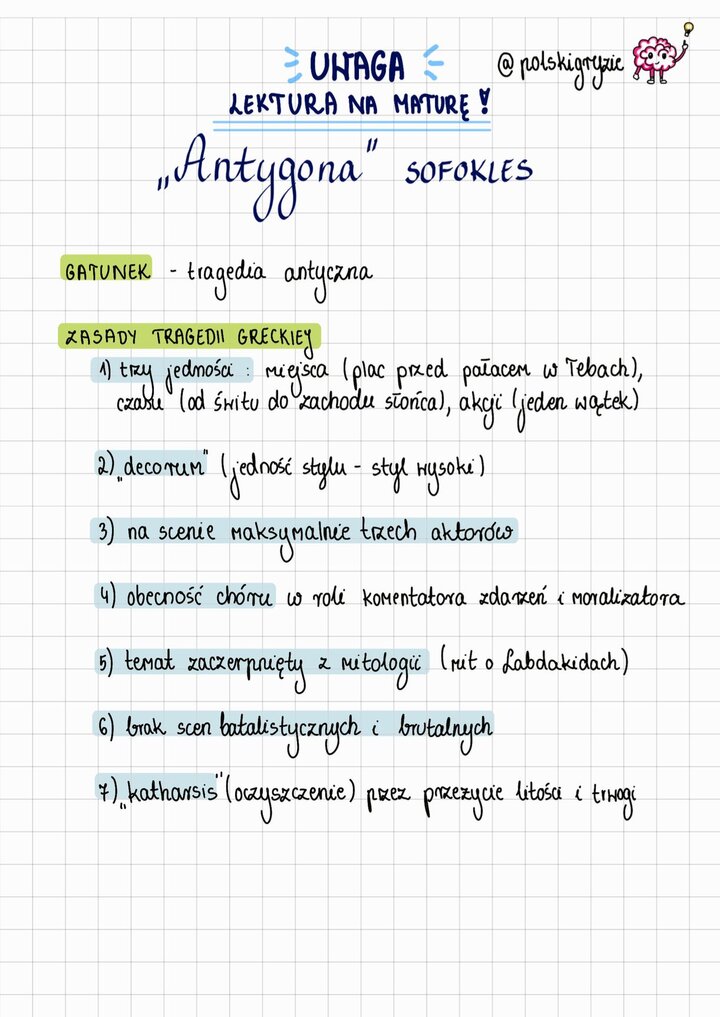 UWAGA
@polskigryzie
LEKTURA NA MATURĘ!
„Antygona" SOFOKLES
GATUNEK - tragedia antyczna
ZASADY TRAGEDII GRECKIEJ
1) trzy jedności: miejsca (plac przed pałacem w Tebach),
czasu (od świtu do zachodu słońca), akcji (jeden wątek)
2) „decorum" (jedność stylu - styl wysoki)
3) na scenie maksymalnie trzech aktorów
4) obecność chóru w roli komentatora zdarzeń i moralizatora
5) temat zaczerpnięty z mitologii (mit o Labdakidach)
6) brak scen batalistycznych i brutalnych
7) „katharsis" (oczyszczenie) przez przeżycie litości i trwogi